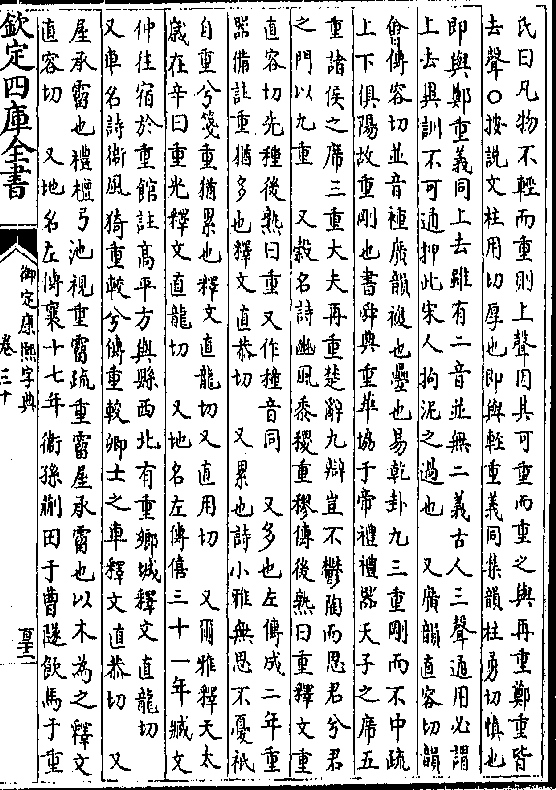 氏曰凡物不輕而重則上聲因其可重而重之與再重鄭重皆
去聲○按說文柱用切厚也即與輕重義同集韻柱勇切愼也
即與鄭重義同上去雖有二音並無二義古人三聲通用必謂
上去異訓不可通押此宋人拘泥之過也　又廣韻直容切韻
會傳容切並音種廣韻複也疊也易乾卦九三重剛而不中疏
上下俱陽故重剛也書舜典重華協于帝禮禮器天子之席五
重諸侯之席三重大夫再重楚辭九辯豈不鬱陶而思君兮君
之門以九重　又穀名詩豳風黍稷重穋傳後熟曰重釋文重
直容切先種後熟曰重又作種音同　又多也左傳成二年重
器備註重猶多也釋文直恭切　又累也詩小雅無思不憂祇
自重兮箋重猶累也釋文直龍切又直用切　又爾雅釋天太
歲在辛曰重光釋文直龍切　又地名左傳僖三十一年臧文
仲往宿於重館註高平方與縣西北有重鄉城釋文直龍切
又車名詩衛風猗重較兮傳重較卿士之車釋文直恭切　又
屋承霤也禮檀弓池視重霤疏重霤屋承霤也以木為之釋文
直容切　又地名左傳襄十七年衛孫蒯田于曹隧飲馬于重
欽定四庫全書
御定康熙字典
卷三十